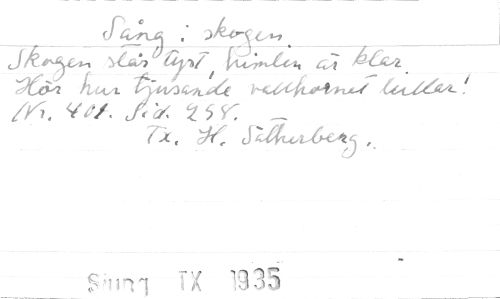 Sång i skogen
Skogen står tyst, himlen är klar
Hör hur tjusande vallhornet lullar!
Nr. 401. Sid. 258.
Tx. H. Sätherberg.
Sjung TX 1935